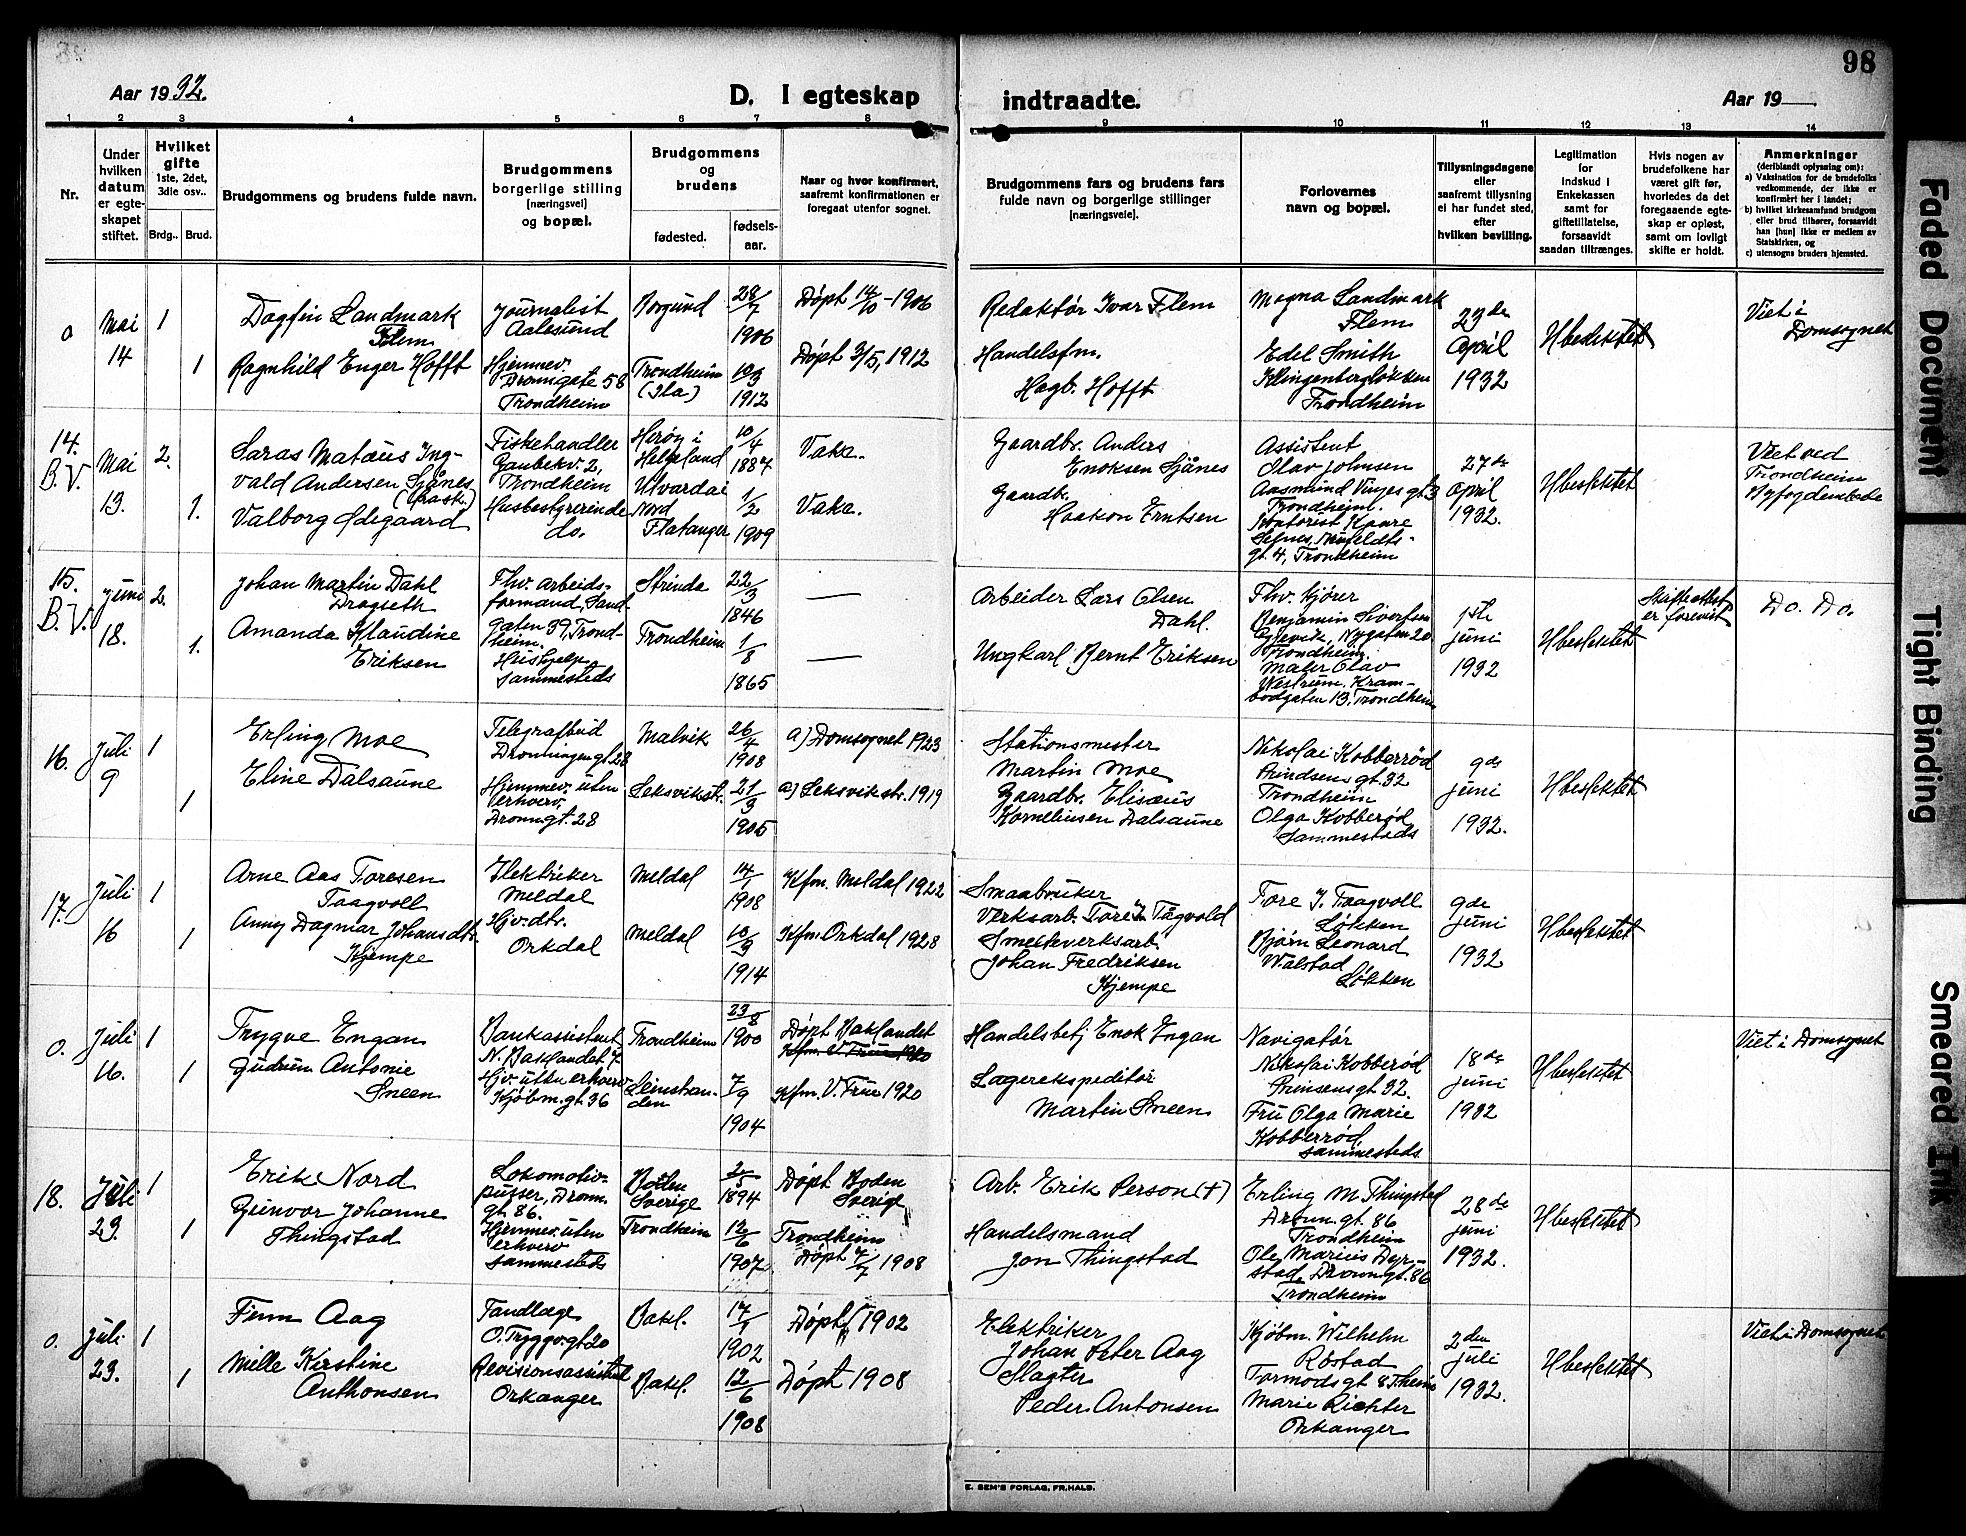 98
Aar 1932.
D. I egteskap
indtraadte.
Aar 19
1 2 3 4 5 6 7 8 9 10 11 12 13 14
Nr.
Under
hvilken
datum
er egte-
skapet
stiftet.
Hvilket
gifte
1ste, 2det,
3die osv..
Brdg.. Brud.
Brudgommens og brudens fulde navn.
Brudgommens
borgerlige stilling
[næringsvei]
og bopæl.
Brudgommens
og
brudens
fødested.
fødsels-
aar.
Naar og hvor konfirmert,
saafremt konfirmationen er
foregaat utenfor sognet.
Brudgommens fars og brudens fars
fulde navn og borgerlige stillinger
[næringsveie].
Forlovernes
navn og bopæl.
Tillysningsdagene
eller
saafremt tillysning
ei har fundet sted,
efter
hvilken bevilling.
Legitimation
for
indskud i
Enkekassen
samt for
giftetillatelse,
forsaavidt
saadan tiltrænges.
Hvis nogen av
brudefolkene har
været gift før,
hvorledes da det
foregaaende egte-
skap er opløst,
samt om lovligt
skifte er holdt.
Anmerkninger
(deriblandt oplysning om):
a) Vaksination for de brudefolks
vedkommende, der ikke er
konfirmert her i landet;
b) hvilket kirkesamfund brudgom
eller brud tilhører, forsaavidt
han [hun] ikke er medlem av
Statskirken, og
c) utensogns bruders hjemsted.
0
Mai
14
1
1
Dagfin Landmark
Flem
Ragnhild Enger Hofft
Journalist
Aalesund
Hjemmev.
Dronngate 58
Trondheim
Borgund
Trondheim
(Ila)
28/7
1906
10/3
1912
Døpt 14/10 - 1906
Døpt 3/5, 1912
Redaktør Ivar Flem
Handelsfm.
Hagb. Hofft
Magna Landmark
Flem
Edel Smith
Klingenbergløkken
Trondheim
23de
April
1932
Ubeslektet
Viet i
Domsognet
14.
B.V.
Mai
13.
2.
1.
Saras Matæus Ing-
vald Andersen Sjånes
Valborg Ødegaard
Fiskehandler
Gaubekv. 2,
Trondheim
Husbestyrerinde
do.
Herøy i
Helgeland
Utvorda i
Nord
Flatanger
10/4
1887
1/2
1909
Vaks.
Vaks.
Gaardbr. Anders
Enoksen Sjånes
Gaardb.
Haakon Erntsen
Assistent
Olav Johnsen
Aasmund Vinjes gt 3
Trondheim.
Kontorist Kaare
Selnes,
gt. 4, Trondheim
27de
April
1932.
Ubeslektet
Viet ved
Trondheim
Byfogdembede
15.
B.V.
Juni
18.
2.
1.
Johan Martin Dahl
Dragseth
Amanda Klaudine
Eriksen
Fhv. arbeids-
formand, Sand-
gaten 39, Trond-
heim.
Hushjelp
sammesteds
Strinda
Trondheim
22/3
1846
1/8
1865
Arbeider Lars Olsen
Dahl.
Ungkarl Bernt Eriksen
Fhv. kjører
Benjamin Sivertsen
Gjevik, Nygaten 20
Trondheim.
Maler Olav
Westrum, Kram-
bodgaten 13, Trondheim
1ste
juni
1932
Ubeslektet
Skifteattest
er forevist
Do. Do.
16.
Juli
9
1
1
Erling Moe
Eline Dalsaune
Telegrafbud
Dronningen gt. 28
Hjemmev. uten
erhverv.
Dronngt. 28
Malvik
Leksvikstr.
26/4
1908
21/3
1905
a) Domsognet 1923
a) Leksvikstr. 1919
Stationsmester
Martin Moe
Gaardbr. Elisæus
Korneliusen Dalsaune
Nikolai Kobberrød
Prindsens gt. 32
Trondheim
Olga Kobberød
Sammesteds
9de
juni
1932.
Ubeslektet
17.
Juli
16
1
1
Arne Aas Toresen
Taagvoll
Anny Dagmar Johansdtr.
Kjempe
Elektriker
Meldal
Hjv. dtr.
Orkdal
Meldal
Meldal
14/1
1908
10/9
1914
Kfm. Meldal 1922
Kfm. Orkdal 1928
Smaabruker
Verksarb. Tore J. Tågvold
Smelteverksarb.
Johan Fredriksen
Kjempe
Tore J. Taagvoll
Løkken
Bjørn Leonard
Walstad
Løkken
9de
juni
1932
Ubeslektet
0.
Juli
16.
1
1
Trygve Engan
Gudrun Antonie
Sneen
Bankassistent
N. Baklandet 7
Hjv. uten erhverv
Kjøbm. gt. 36
Trondheim
Leinstran-
den
23/8
1900
7/9
1904
Døpt Baklandet
Kfm. V. Frue 1920
Kfm. V. Frue 1920
Handelsbetj Enok Engan
Lagerekspeditør
Martin Sneen
Navigatør
Nikolai Kobberød
Prinsens gt. 32.
Fru Olga Marie
Kobberrød,
sammesteds.
18de
juni
1932
Ubeslektet
Viet i Domsognet
18.
Juli
23.
1
1
Erik Nord
Gunvor Johanne
Thingstad
Lokomotiv-
pusser, Dronn.
gt. 86.
Hjemmev. uten
erhverv
sammesteds
Boden
Sverige
Trondheim
2/5
1894
12/6
1907
Døpt Boden
Sverige
Trondheim
Døpt 4/7 1908
Arb. Erik Person (+)
Handelsmand
Jon Thingstad
Erling M. Thingstad
Dronn. gt. 86
Trondheim
Ole Marius Dyr-
stad, Dronngt. 86
Trondheim
28de
juni
1932.
Ubeslektet
0.
Juli
23.
1
1
Finn Aag
Mille Kirstine
Anthonsen
Tandlæge
O. Tryggv. gt 20
Revisionsassistent
Orkanger
Bakl.
Bakl.
1902
12/6
1908
Døpt 1902
Døpt 1908
Elektriker
Johan Peter Aag
Slagter
Peder Antonsen
Kjøbm. Wilhelm
Røstad
Tormods gt 8 Theim
Marie Richter
Orkanger
2den
juli
1932.
Ubeslektet
Viet i Domsognet
E. SEM'S FORLAG, FR.HALD.
Faded Document
Tight Binding
Smeared Ink